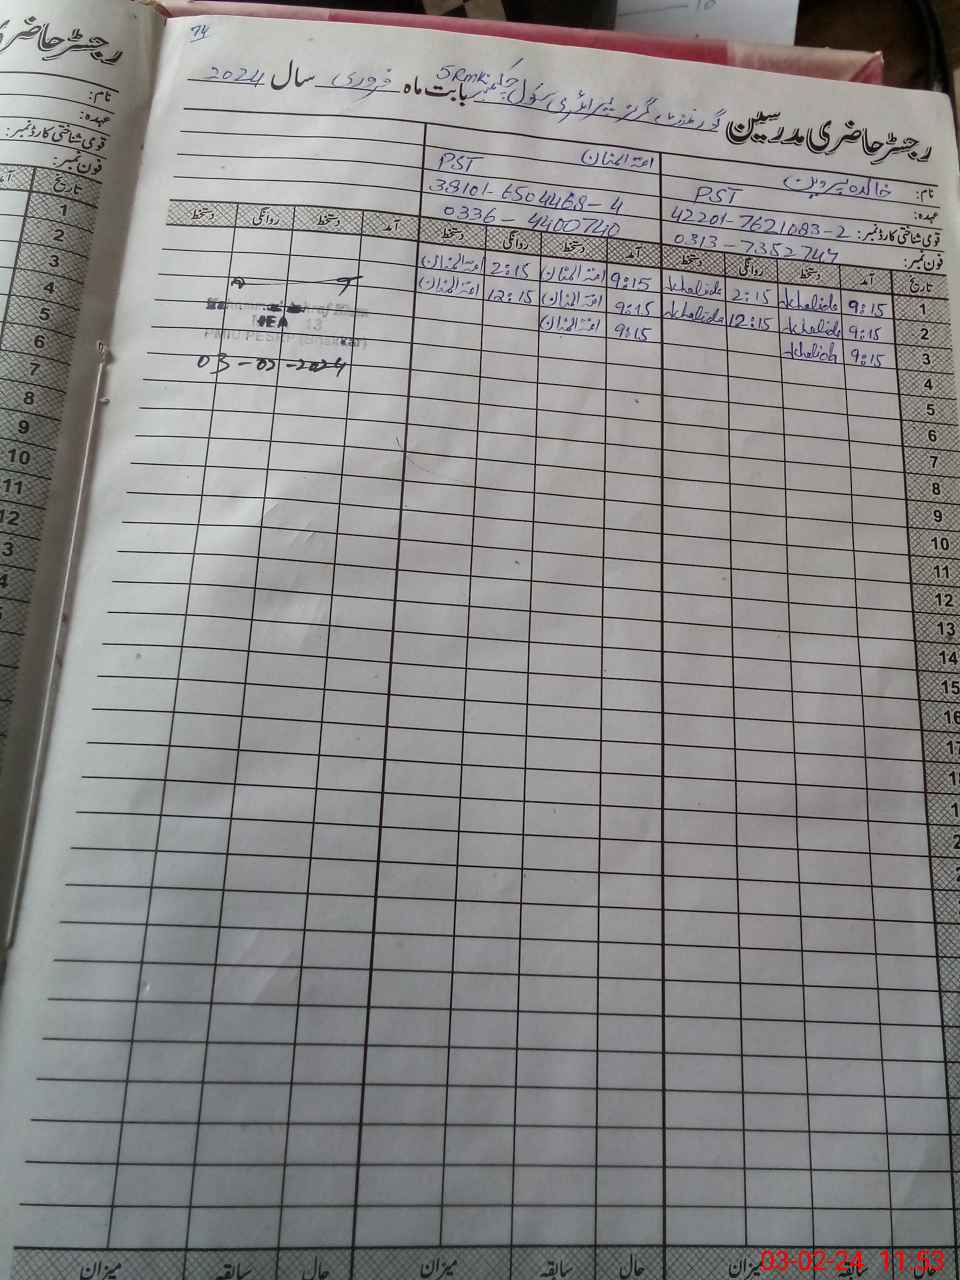 74
رجسٹر حاضری مدرسین گورنمنٹ گرلز پرائمری سکول چک نمبر 5RmK بابت ماہ فروری سال 2024
نام: خالدہ پروین امۃ المنان
عہدہ: PST PST
قومی شناختی کارڈ نمبر: 42201-7621083-2 38101-6504468-4
فون نمبر: 0313-7352747 0336-4400740
تاریخ آمد دستخط روانگی دستخط آمد دستخط روانگی دستخط آمد دستخط روانگی دستخط
1 9:15 khalida 2:15 khalida 9:15 امۃ المنان 2:15 امۃ المنان
2 9:15 khalida 12:15 khalida 9:15 امۃ المنان 12:15 امۃ المنان
3 9:15 khalida 9:15 امۃ المنان
MEA 13
PMIU PESRP (Bhakkar)
03-02-2024
4
5
6
7
8
9
10
11
12
13
14
15
16
17
حال سابقہ میزان حال سابقہ میزان حال سابقہ میزان
رجسٹر حاضری
نام:
عہدہ:
قومی شناختی کارڈ نمبر:
فون نمبر:
تاریخ
1
2
3
4
5
6
7
8
9
10
11
12
03-02-24 11:53